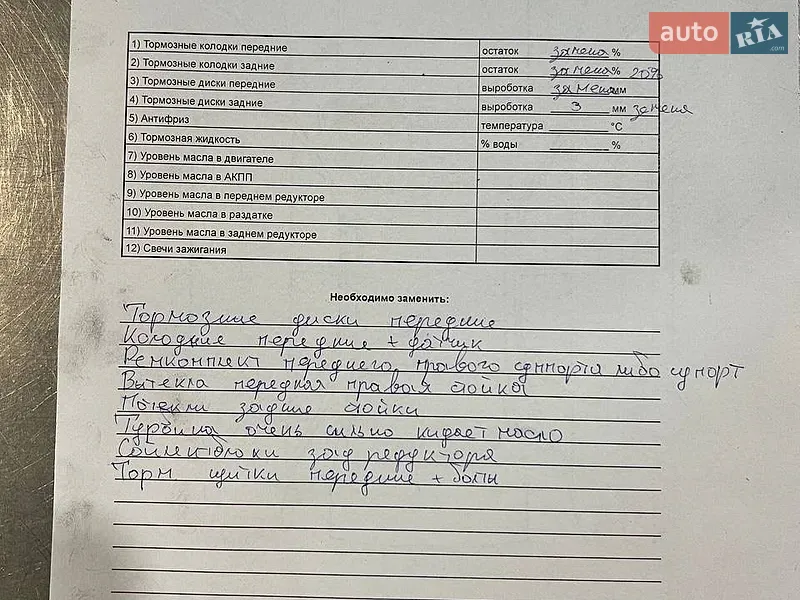 auto RIA.com
1) Тормозные колодки передние остаток замена %
2) Тормозные колодки задние остаток замена % 20%
3) Тормозные диски передние выроботка замена мм
4) Тормозные диски задние выроботка 3 мм замена
5) Антифриз температура °C
6) Тормозная жидкость % воды %
7) Уровень масла в двигателе
8) Уровень масла в АКПП
9) Уровень масла в переднем редукторе
10) Уровень масла в раздатке
11) Уровень масла в заднем редукторе
12) Свечи зажигания
Необходимо заменить:
Тормозные диски передние
Колодкие передние + датчик
Ремкомплект переднего правого суппорта либо супорт
Вытекла передняя правая стойка
Потекли задние стойки
Турбина очень сильно кидает масло
Сайлентблоки зад редуктора
Торм щитки передние + болты